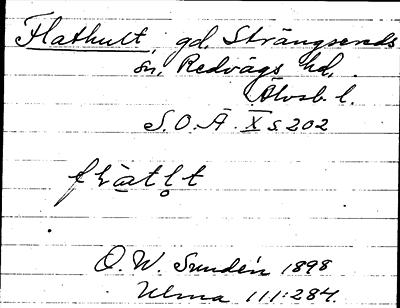 Flathult, gd, Strängsereds
sn, Redvägs hd,
Älvsb. l.
S.O.Ä. X s. 202
O. W. Sundén 1898
Ulma 111:284.